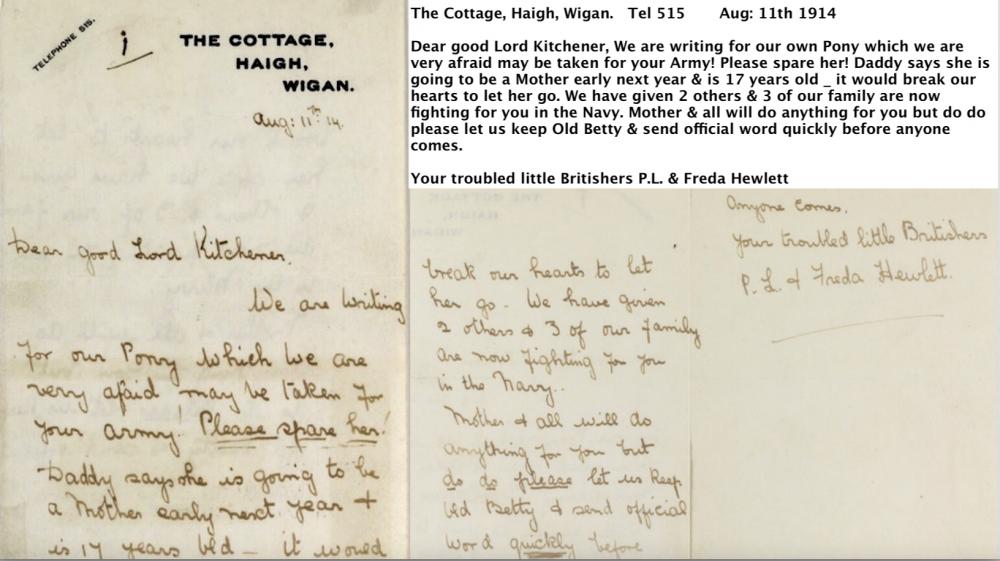 TELEPHONE 515.
i
THE COTTAGE,
HAIGH,
WIGAN.
Aug: 11th 14.
Dear good Lord Kitchener,
We are writing
for our Pony which we are
very afaid may be taken for
your army! Please spare her!
Daddy says she is going to be
a Mother early next year +
is 17 years old _ it would
break our hearts to let
her go. We have given
2 others & 3 of our family
are now fighting for you
in the Navy..
Mother & all will do
anything for you but
do do please let us keep
old Betty & send official
word quickly before
anyone comes.
Your troubled little Britishers
P.L. & Freda Hewlett.
The Cottage, Haigh, Wigan. Tel 515 Aug: 11th 1914
Dear good Lord Kitchener, We are writing for our own Pony which we are
very afraid may be taken for your Army! Please spare her! Daddy says she is
going to be a Mother early next year & is 17 years old _ it would break our
hearts to let her go. We have given 2 others & 3 of our family are now
fighting for you in the Navy. Mother & all will do anything for you but do do
please let us keep Old Betty & send official word quickly before anyone
comes.
Your troubled little Britishers P.L. & Freda Hewlett